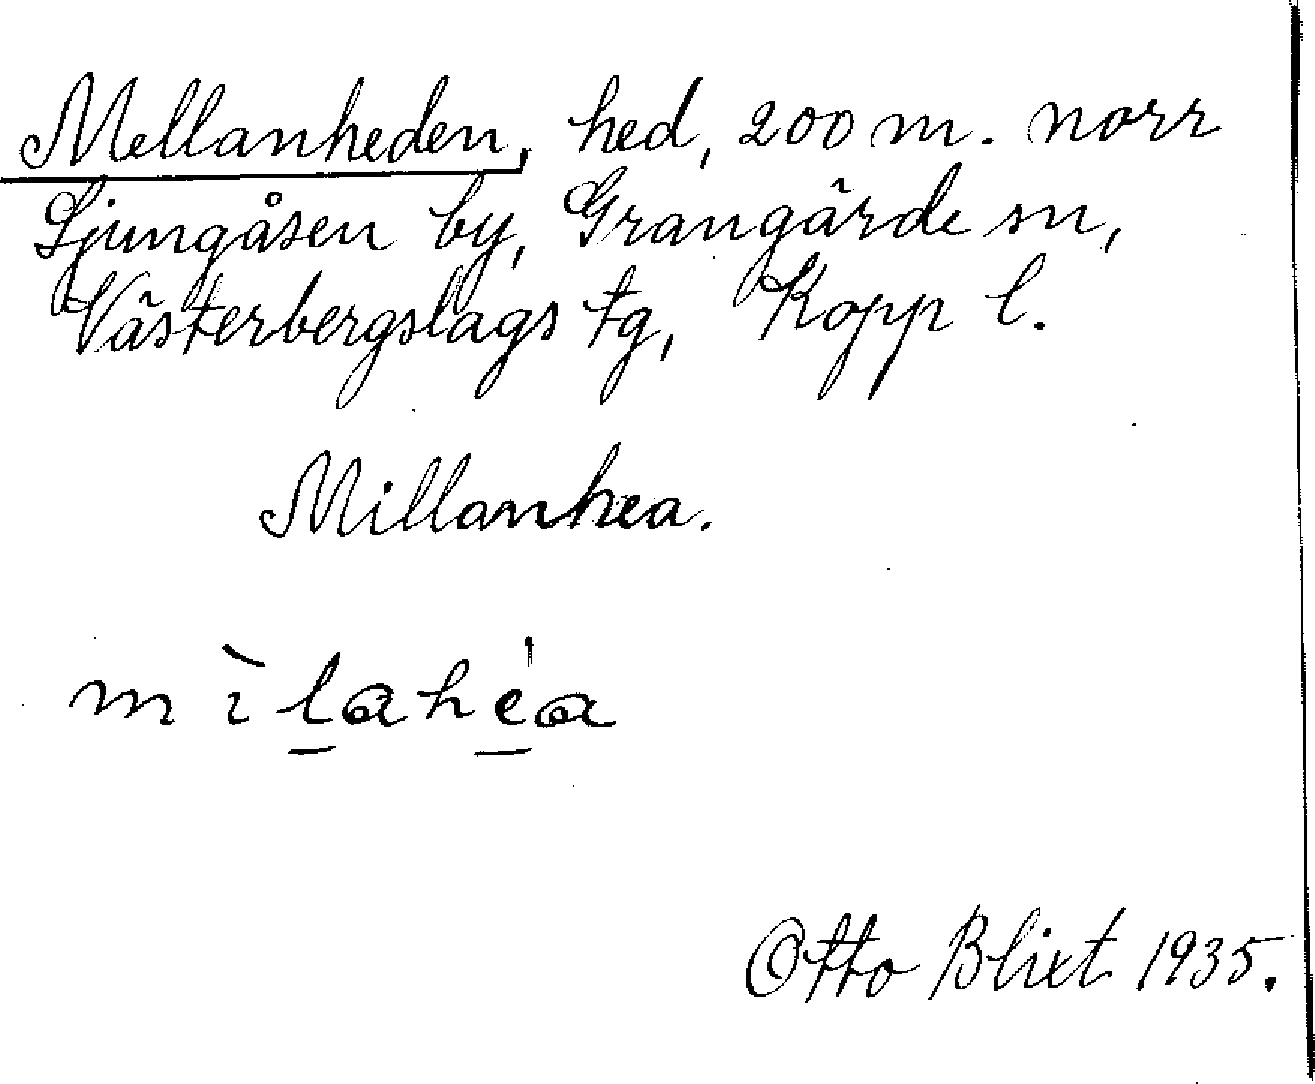 Mellanheden, hed, 200 m. norr
Ljungåsen by, Grangärde sn,
Västerbergslags tg, Kopp l.
Millanhea.
mìl̲ahé̲a
Otto Blixt 1935.